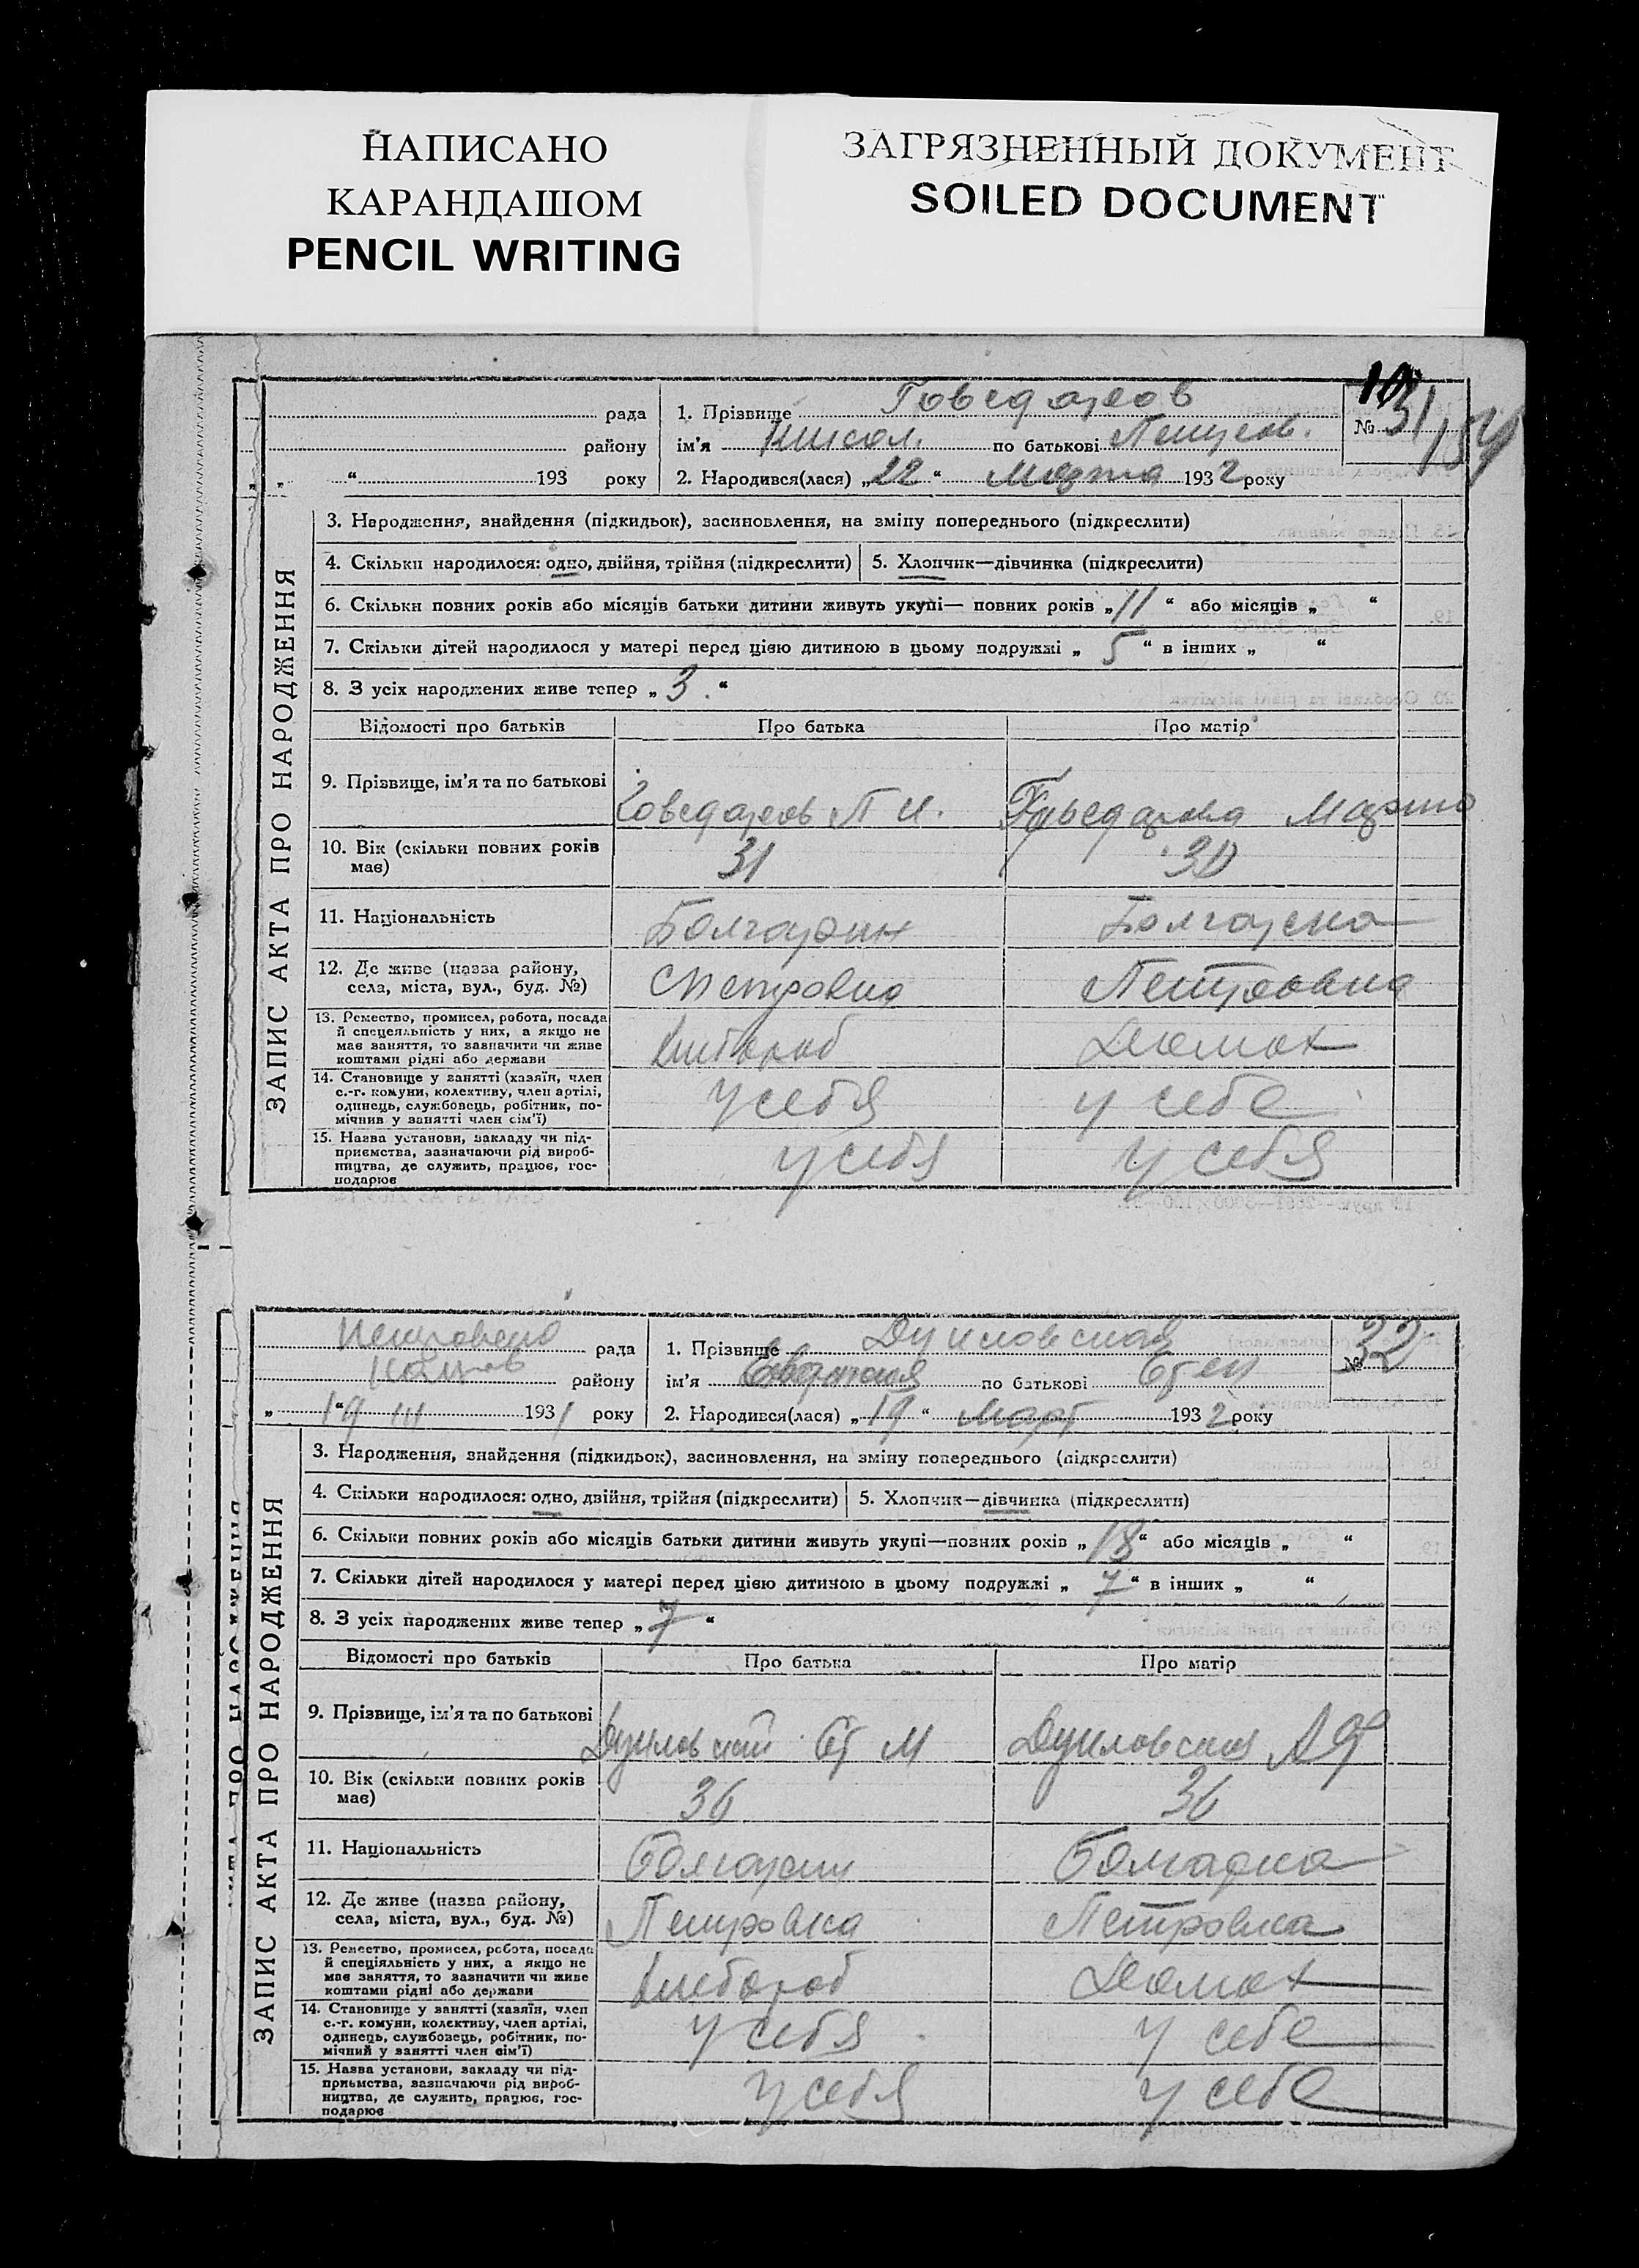 НАПИСАНО
КАРАНДАШОМ
PENCIL WRITING
ЗАГРЯЗНЕННЫЙ ДОКУМЕНТ
SOILED DOCUMENT
ЗАПИС АКТА ПРО НАРОДЖЕННЯ
рада
району
„ “ 193 року
1. Прізвище Говедаров
ім'я по батькові Петров.
2. Народився(лася) „22“ Марта 1932 року
№ 31
3. Народження, знайдення (підкидьок), засиновлення, на зміну попереднього (підкреслити)
4. Скільки народилося: одно, двійня, трійня (підкреслити) 5. Хлопчик—дівчинка (підкреслити)
6. Скільки повних років або місяців батьки дитини живуть укупі— повних років „11“ або місяців „ “
7. Скільки дітей народилося у матері перед цією дитиною в цьому подружжі „5“ в інших „ “
8. З усіх народжених живе тепер „3.“
Відомості про батьків Про батька Про матір
9. Прізвище, ім'я та по батькові Говедаров П И. Говедарова Марта
10. Вік (скільки повних років має) 31 30
11. Національність Болгарин Болгарка
12. Де живе (назва району, села, міста, вул., буд. №) Петровка Петровка
13. Ремество, промисел, робота, посада
й спецеяльність у них, а якщо не
має заняття, то зазначити чи живе
коштами рідні або держави
Хлебороб Домох
14. Становище у занятті (хазяїн, член
с.-г. комуни, колективу, член артілі,
одинець, службовець, робітник, по-
мічник у занятті член сім'ї)
у себя у себе
15. Назва установи, закладу чи під-
приємства, зазначаючи рід вироб-
ництва, де служить, працює, гос-
подарює
у себя у себя
ЗАПИС АКТА ПРО НАРОДЖЕННЯ
рада
району
„19“ III 1931 року
1. Прізвище
ім'я по батькові
2. Народився(лася) „19“ Март 1932 року
№ 32
3. Народження, знайдення (підкидьок), засиновлення, на зміну попереднього (підкреслити)
4. Скільки народилося: одно, двійня, трійня (підкреслити) 5. Хлопчик—дівчинка (підкреслити)
6. Скільки повних років або місяців батьки дитини живуть укупі—повних років „18“ або місяців „ “
7. Скільки дітей народилося у матері перед цією дитиною в цьому подружжі „7“ в інших „ “
8. З усіх народжених живе тепер „7“
Відомості про батьків Про батька Про матір
9. Прізвище, ім'я та по батькові
10. Вік (скільки повних років має) 36 36
11. Національність Болгарин Болгарка
12. Де живе (назва району, села, міста, вул., буд. №) Петровка Петровка
13. Ремество, промисел, робота, посада
й спеціяльність у них, а якщо не
має заняття, то зазначити чи живе
коштами рідні або держави
Хлебороб Домох
14. Становище у занятті (хазяїн, член
с.-г. комуни, колективу, член артілі,
одинець, службовець, робітник, по-
мічний у занятті член сім'ї)
у себя у себе
15. Назва установи, закладу чи під-
приьмства, зазначаючи рід вироб-
ництва, де служить, працює, гос-
подарює
у себя у себе